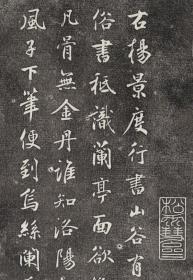 古楊景度行書山谷有
俗書祗識蘭亭面欲
凡骨無金丹誰知洛陽
風子下筆便到烏絲闌